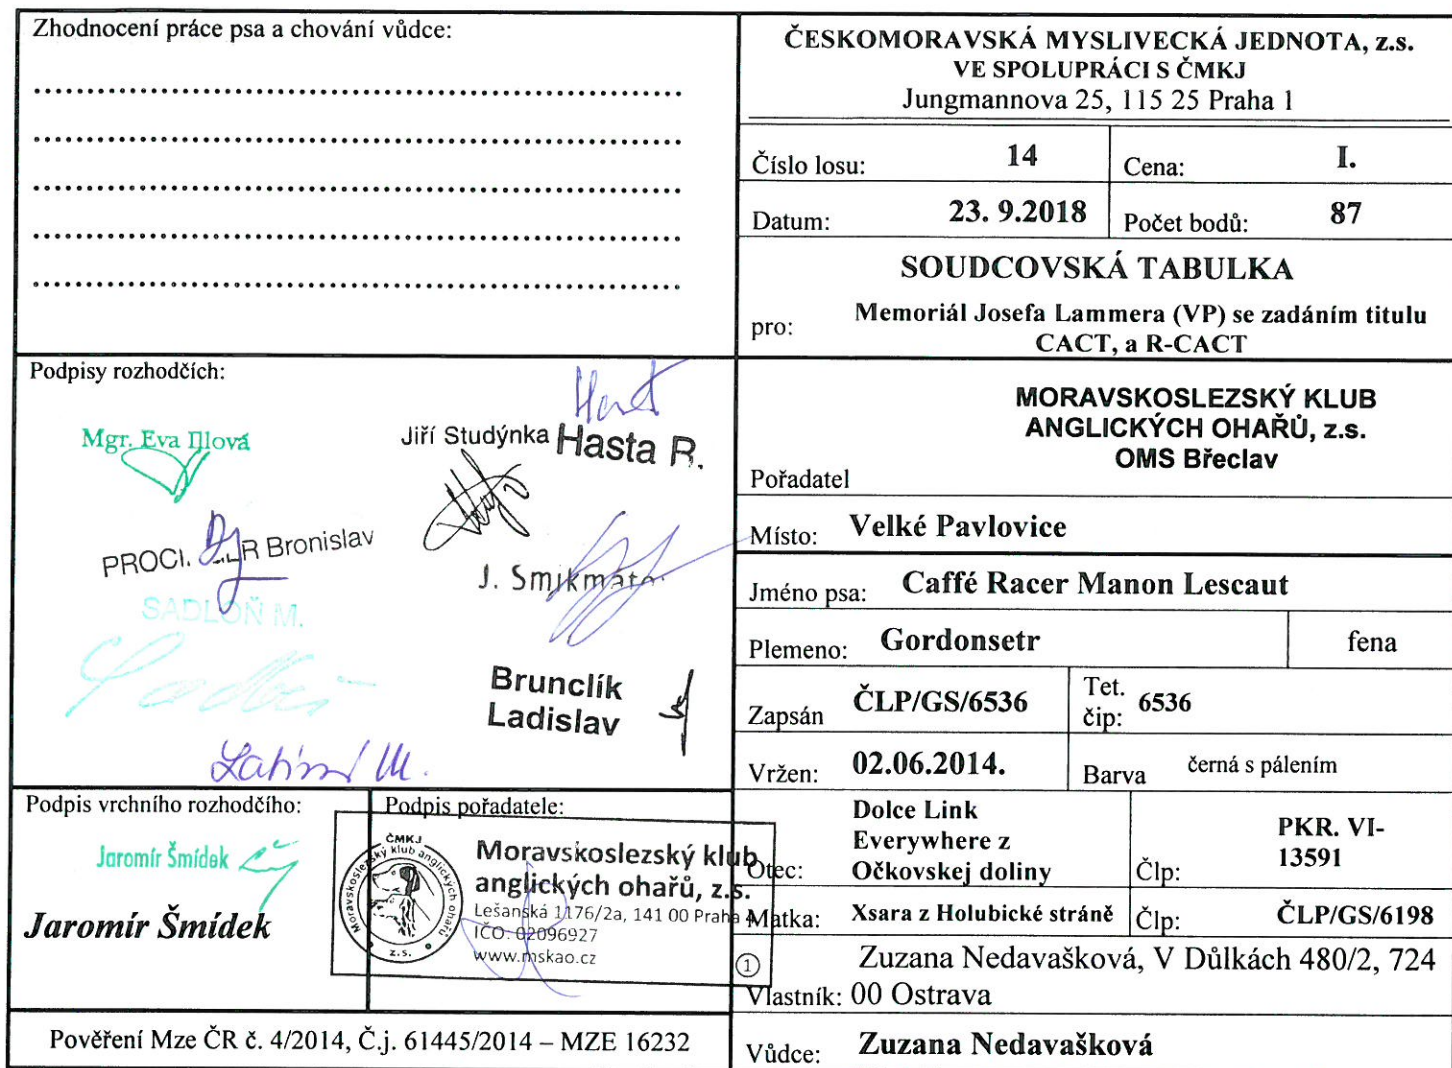 Zhodnocení práce psa a chování vůdce:
Podpisy rozhodčích:
Mgr. Eva Illová
Jiří Studýnka
Hasta R.
Bronislav
SADLOŇ M.
Brunclík
Ladislav
Podpis vrchního rozhodčího:
Jaromír Šmídek
Jaromír Šmídek
Podpis pořadatele:
ČMKJ
Moravskoslezský klub anglických ohařů
z.s.
Moravskoslezský klub
anglických ohařů, z.s.
Lešanská 1176/2a, 141 00 Praha 4
IČO: 02096927
www.mskao.cz
1
Pověření Mze ČR č. 4/2014, Č.j. 61445/2014 – MZE 16232
ČESKOMORAVSKÁ MYSLIVECKÁ JEDNOTA, z.s.
VE SPOLUPRÁCI S ČMKJ
Jungmannova 25, 115 25 Praha 1
Číslo losu: 14 Cena: I.
Datum: 23. 9.2018 Počet bodů: 87
SOUDCOVSKÁ TABULKA
pro: Memoriál Josefa Lammera (VP) se zadáním titulu
CACT, a R-CACT
MORAVSKOSLEZSKÝ KLUB
ANGLICKÝCH OHAŘŮ, z.s.
OMS Břeclav
Pořadatel
Místo: Velké Pavlovice
Jméno psa: Caffé Racer Manon Lescaut
Plemeno: Gordonsetr fena
Zapsán ČLP/GS/6536 Tet.
čip: 6536
Vržen: 02.06.2014. Barva černá s pálením
Dolce Link
Everywhere z PKR. VI-
Otec: Očkovskej doliny Člp: 13591
Matka: Xsara z Holubické stráně Člp: ČLP/GS/6198
Zuzana Nedavašková, V Důlkách 480/2, 724
Vlastník: 00 Ostrava
Vůdce: Zuzana Nedavašková